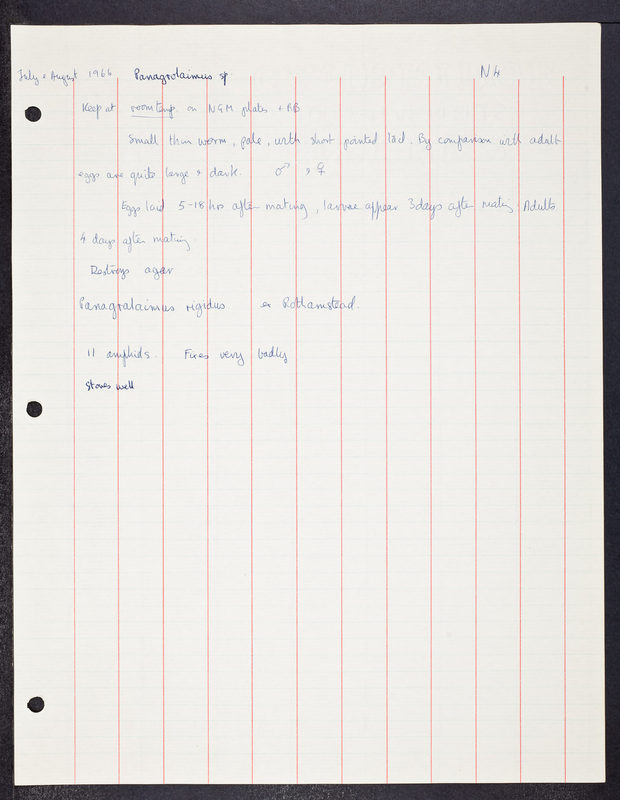 July & August 1966 Panagrolaimus sp N4
Keep at room temp on NGM plates + AB
Small thin worm, pale, with short pointed tail. By comparison with adult
eggs are quite large & dark. ♂ & ♀
Eggs laid 5-18 hrs after mating, larvae appear 3 days after mating. Adults
4 days after mating.
Destroys agar
Panagralaimus rigidus ex Rothamstead.
11 amphids. Fixes very badly
Stores well